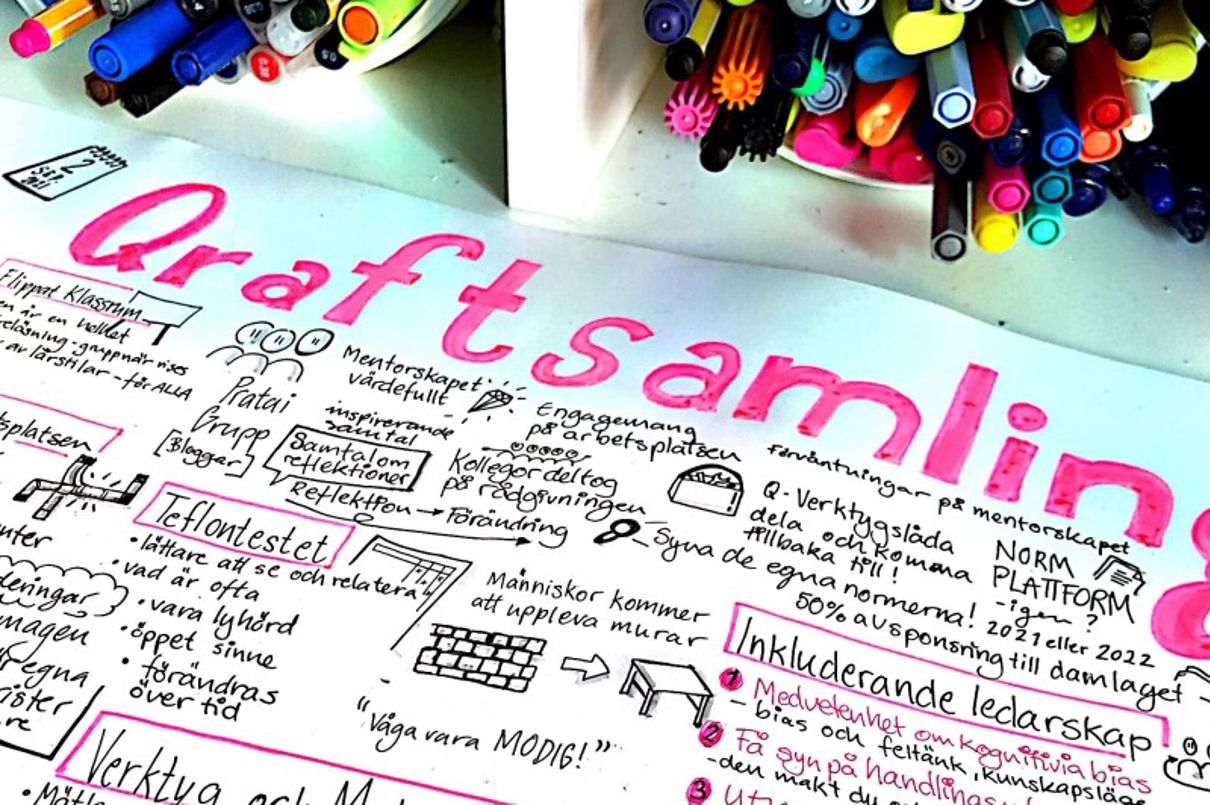 2
SEP.
Qraftsamling
Flippat Klassrum
en är en helhet
reläsning-gruppnär
av lärstilar - för ALLA
Pratai
Grupp
[Bloggar]
Mentorskapet
värdefullt
inspirerande
samtal
Samtal om
reflektioner
Reflektion → Förändring
Engagemang
på arbetsplatsen
Kollegor deltog
på rådgivningen
Förväntningar på mentorskapet
Q-Verktygslåda
dela och komma
tillbaka till!
NORM
PLATTFORM
-igen?
2021 eller 2022
Syna de egna normerna!
50% av sponsring till damlaget
splatsen
nter
deringar
magen
r egna
rister
re
Teflontestet
• lättare att se och relatera
• vad är ofta
• vara lyhörd
• öppet sinne
• förändras
över tid
Människor kommer
att uppleva murar
"Våga vara MODIG!"
Inkluderande ledarskap
1 Medvetenhet om kognitiva bias
- bias och feltänk, kunskapsläge
2 Få syn på handlingsu
- den makt du
3 Ut
Verktyg och M
• Mätla
0.38
0.5